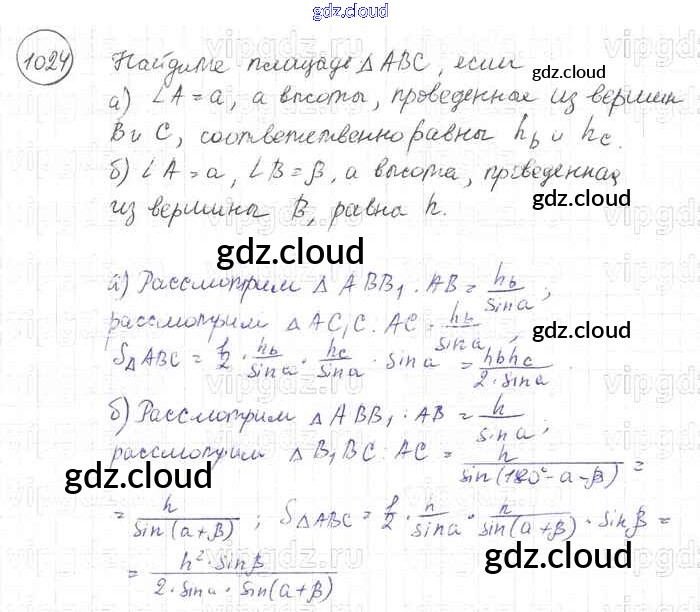 gdz.cloud
1024
Найдите площадь Δ ABC, если
gdz.cloud
а) ∠A = α, а высоты, проведенные из вершин
B и C, соответственно равны h_b и h_c.
б) ∠A = α, ∠B = β, а высота, проведенная
gdz.cloud
из вершины B, равна h.
gdz.cloud
gdz.cloud
а) Рассмотрим Δ ABB₁ : AB = h_b/sin α ;
рассмотрим Δ AC₁C : AC = h_b/sin α ,
gdz.cloud
S_ΔABC = 1/2 · h_b/sin α · h_c/sin α · sin α = h_b h_c/2 · sin α
б) Рассмотрим Δ ABB₁ : AB = h/sin α ;
gdz.cloud
рассмотрим Δ B₁BC : AC = h/sin(180° - α - β) =
gdz.cloud
= h/sin(α + β) ; S_ΔABC = 1/2 · h/sin α · h/sin(α + β) · sin β =
= h² · sin β/2 · sin α · sin(α + β)
gdz.cloud